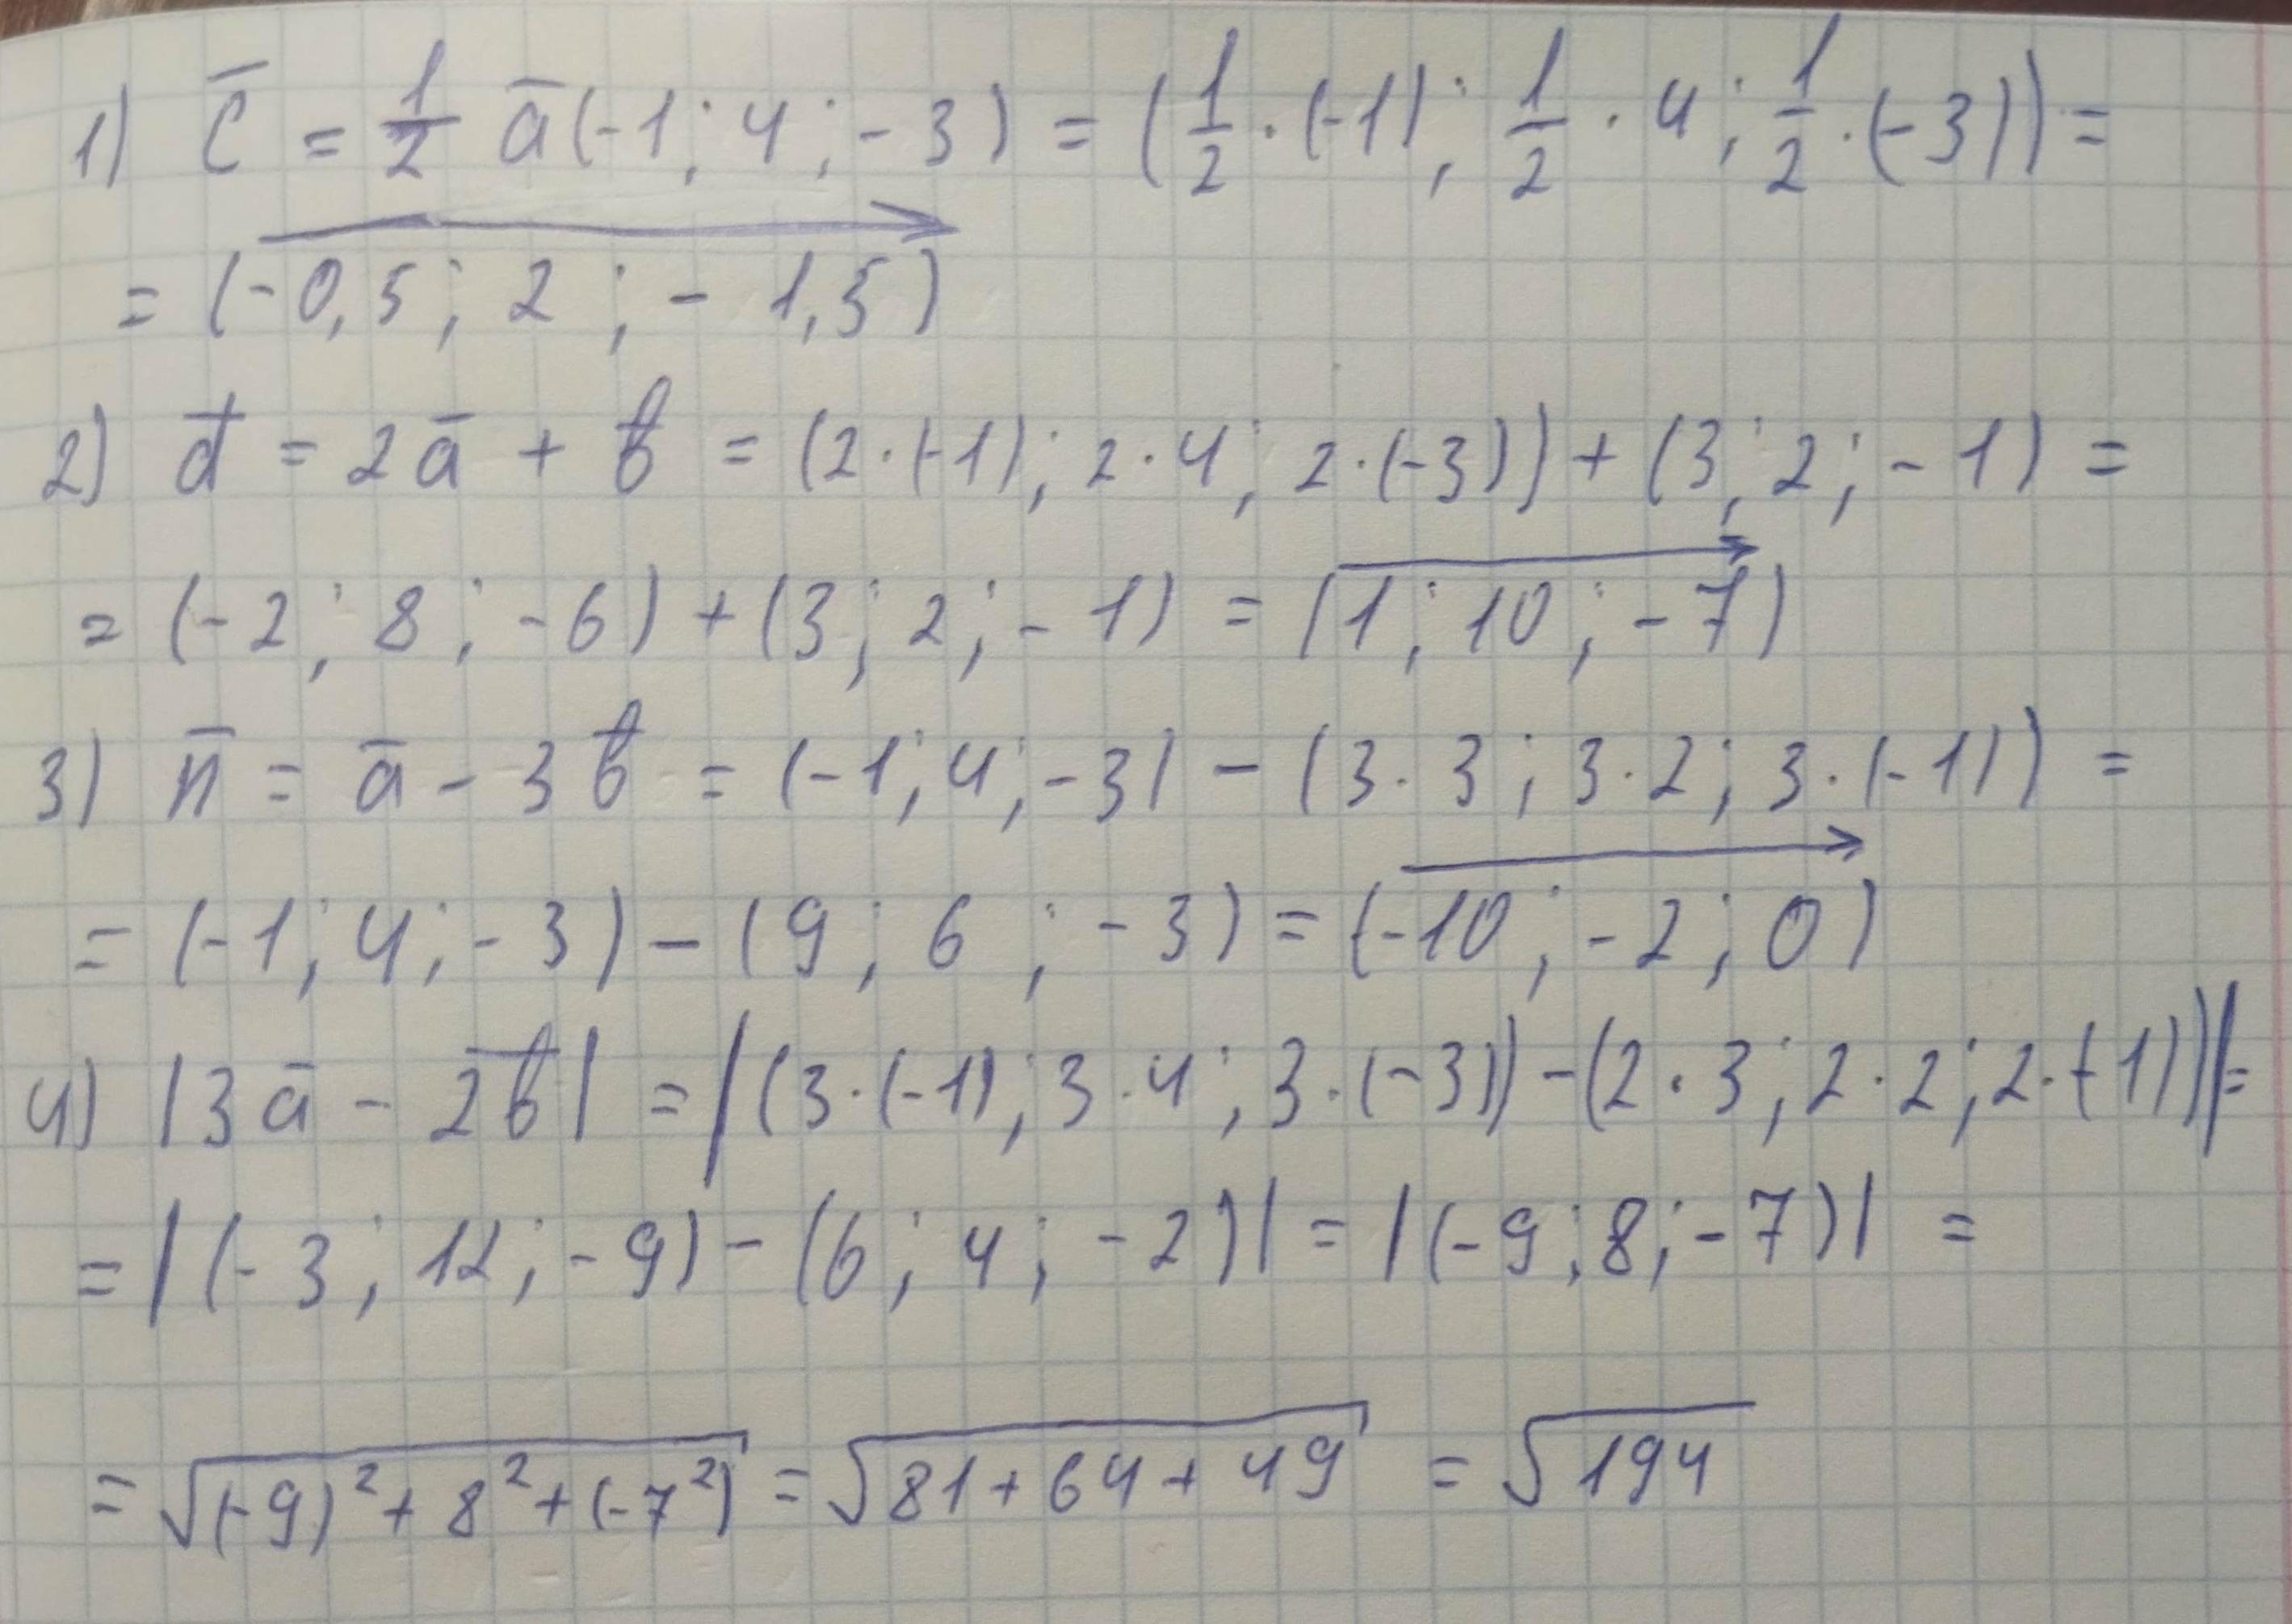 1) c̅ = 1/2 a̅(-1; 4; -3) = (1/2 · (-1); 1/2 · 4; 1/2 · (-3)) =
= (-0,5; 2; -1,5)
2) d̅ = 2a̅ + b̅ = (2·(-1); 2·4; 2·(-3)) + (3; 2; -1) =
= (-2; 8; -6) + (3; 2; -1) = (1; 10; -7)
3) n̅ = a̅ - 3b̅ = (-1; 4; -3) - (3·3; 3·2; 3·(-1)) =
= (-1; 4; -3) - (9; 6; -3) = (-10; -2; 0)
4) |3a̅ - 2b̅| = |(3·(-1); 3·4; 3·(-3)) - (2·3; 2·2; 2·(-1))| =
= |(-3; 12; -9) - (6; 4; -2)| = |(-9; 8; -7)| =
= √((-9)² + 8² + (-7²)) = √(81 + 64 + 49) = √194